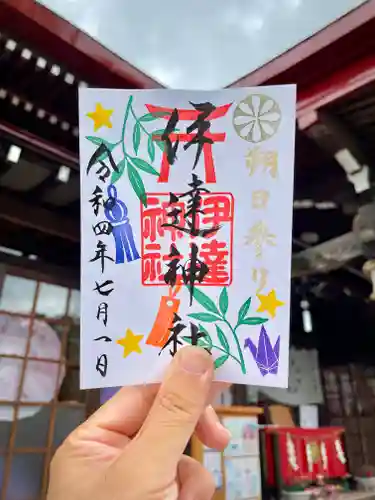 朔日参り
伊達神社
伊達神社
令和四年七月一日